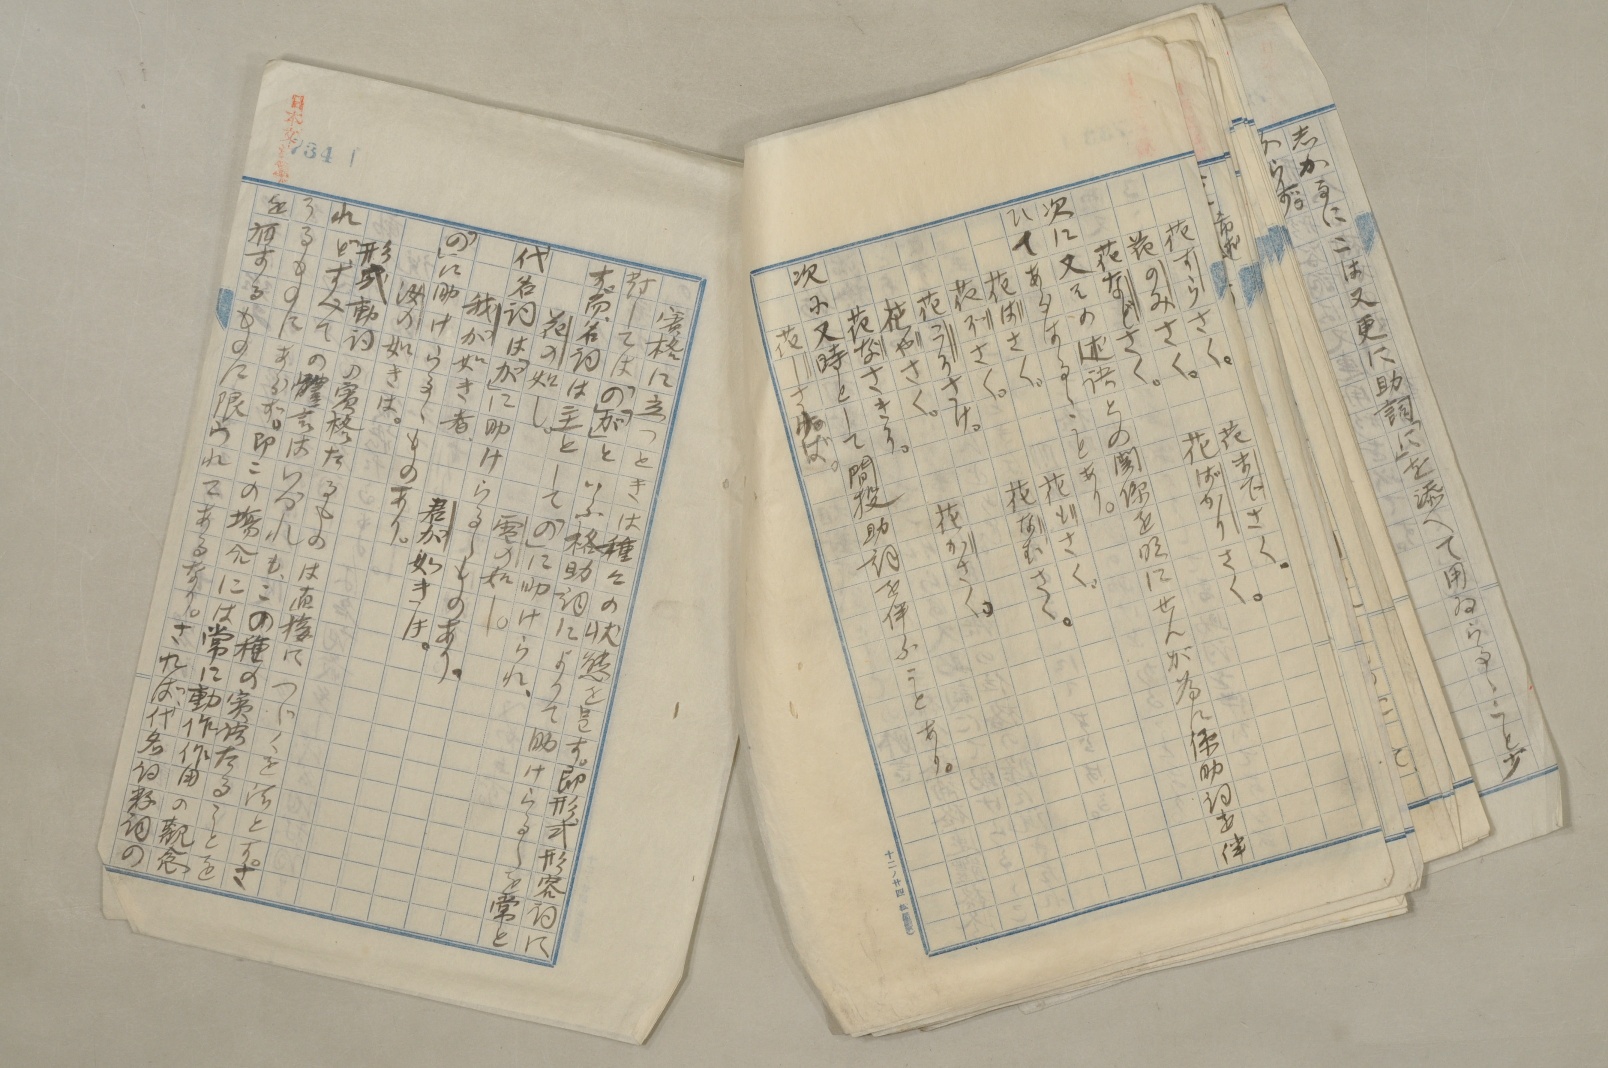 志かるにこは又更に助詞「に」を添へて用ゐらるゝこと少
からず。
花すらさく。 花までさく。
花のみさく。 花ばかりさく。
花などさく。
次に又その述語との関係を明にせんが為に係助詞を伴
ひてあらはるゝことあり。
花はさく。 花もさく。
花ぞさく。 花なむさく。
花こそさけ。
花やさく。 花かさく。
花なさきそ。
次に又時として間投助詞を伴ふことあり。
花しさけば。
734
賓格に立つときは種々の状態を呈す。即形式形容詞に
対しては「の」「が」といふ格助詞によりて助けらるゝを常と
す。而、名詞は主として「の」に助けられ、
花の如し。 雪の如し。
代名詞は「が」に助けらるゝものあり。
我が如き者、 君が如きは。
「の」に助けらるゝものあり。
汝の如きは。
形式動詞の賓格たるものは直接につゞくを法とす。さ
れどすべての体言はいづれも、この種の実語たることを
うるものにあらず。即この場合には常に動作作用の観念
を有するものに限られてあるなり。されば、代名詞数詞の